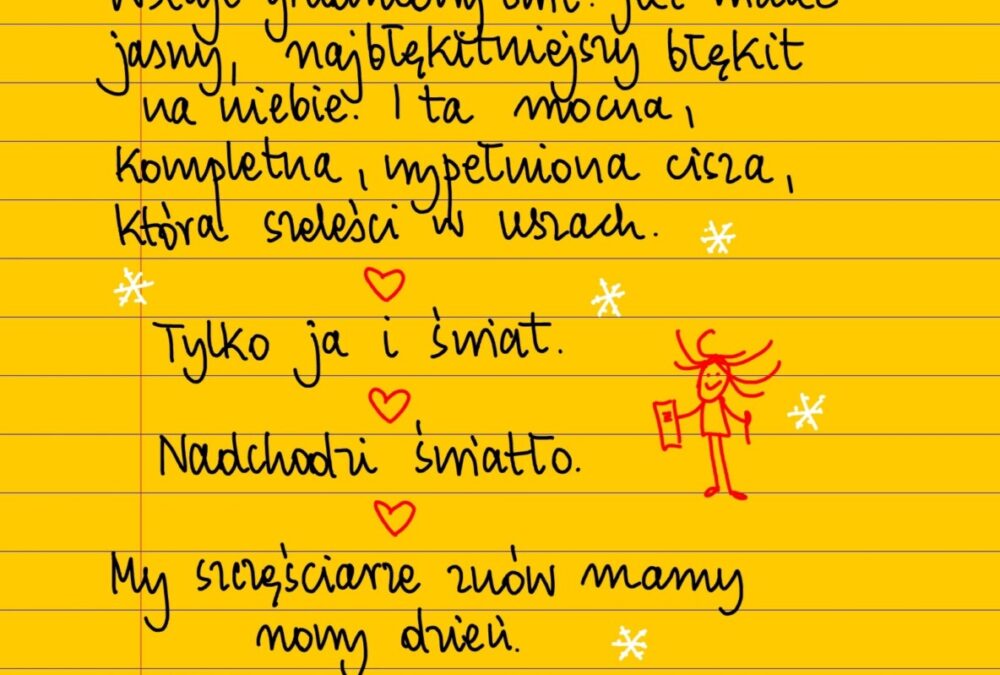 Wstaje grudniowy świt. widać
jasny, najbłękitniejszy błękit
na niebie. I ta mocna,
kompletna, wypełniona cisza,
która szeleści w uszach.
Tylko ja i świat.
Nadchodzi światło.
My szczęściarze znów mamy
nowy dzień.